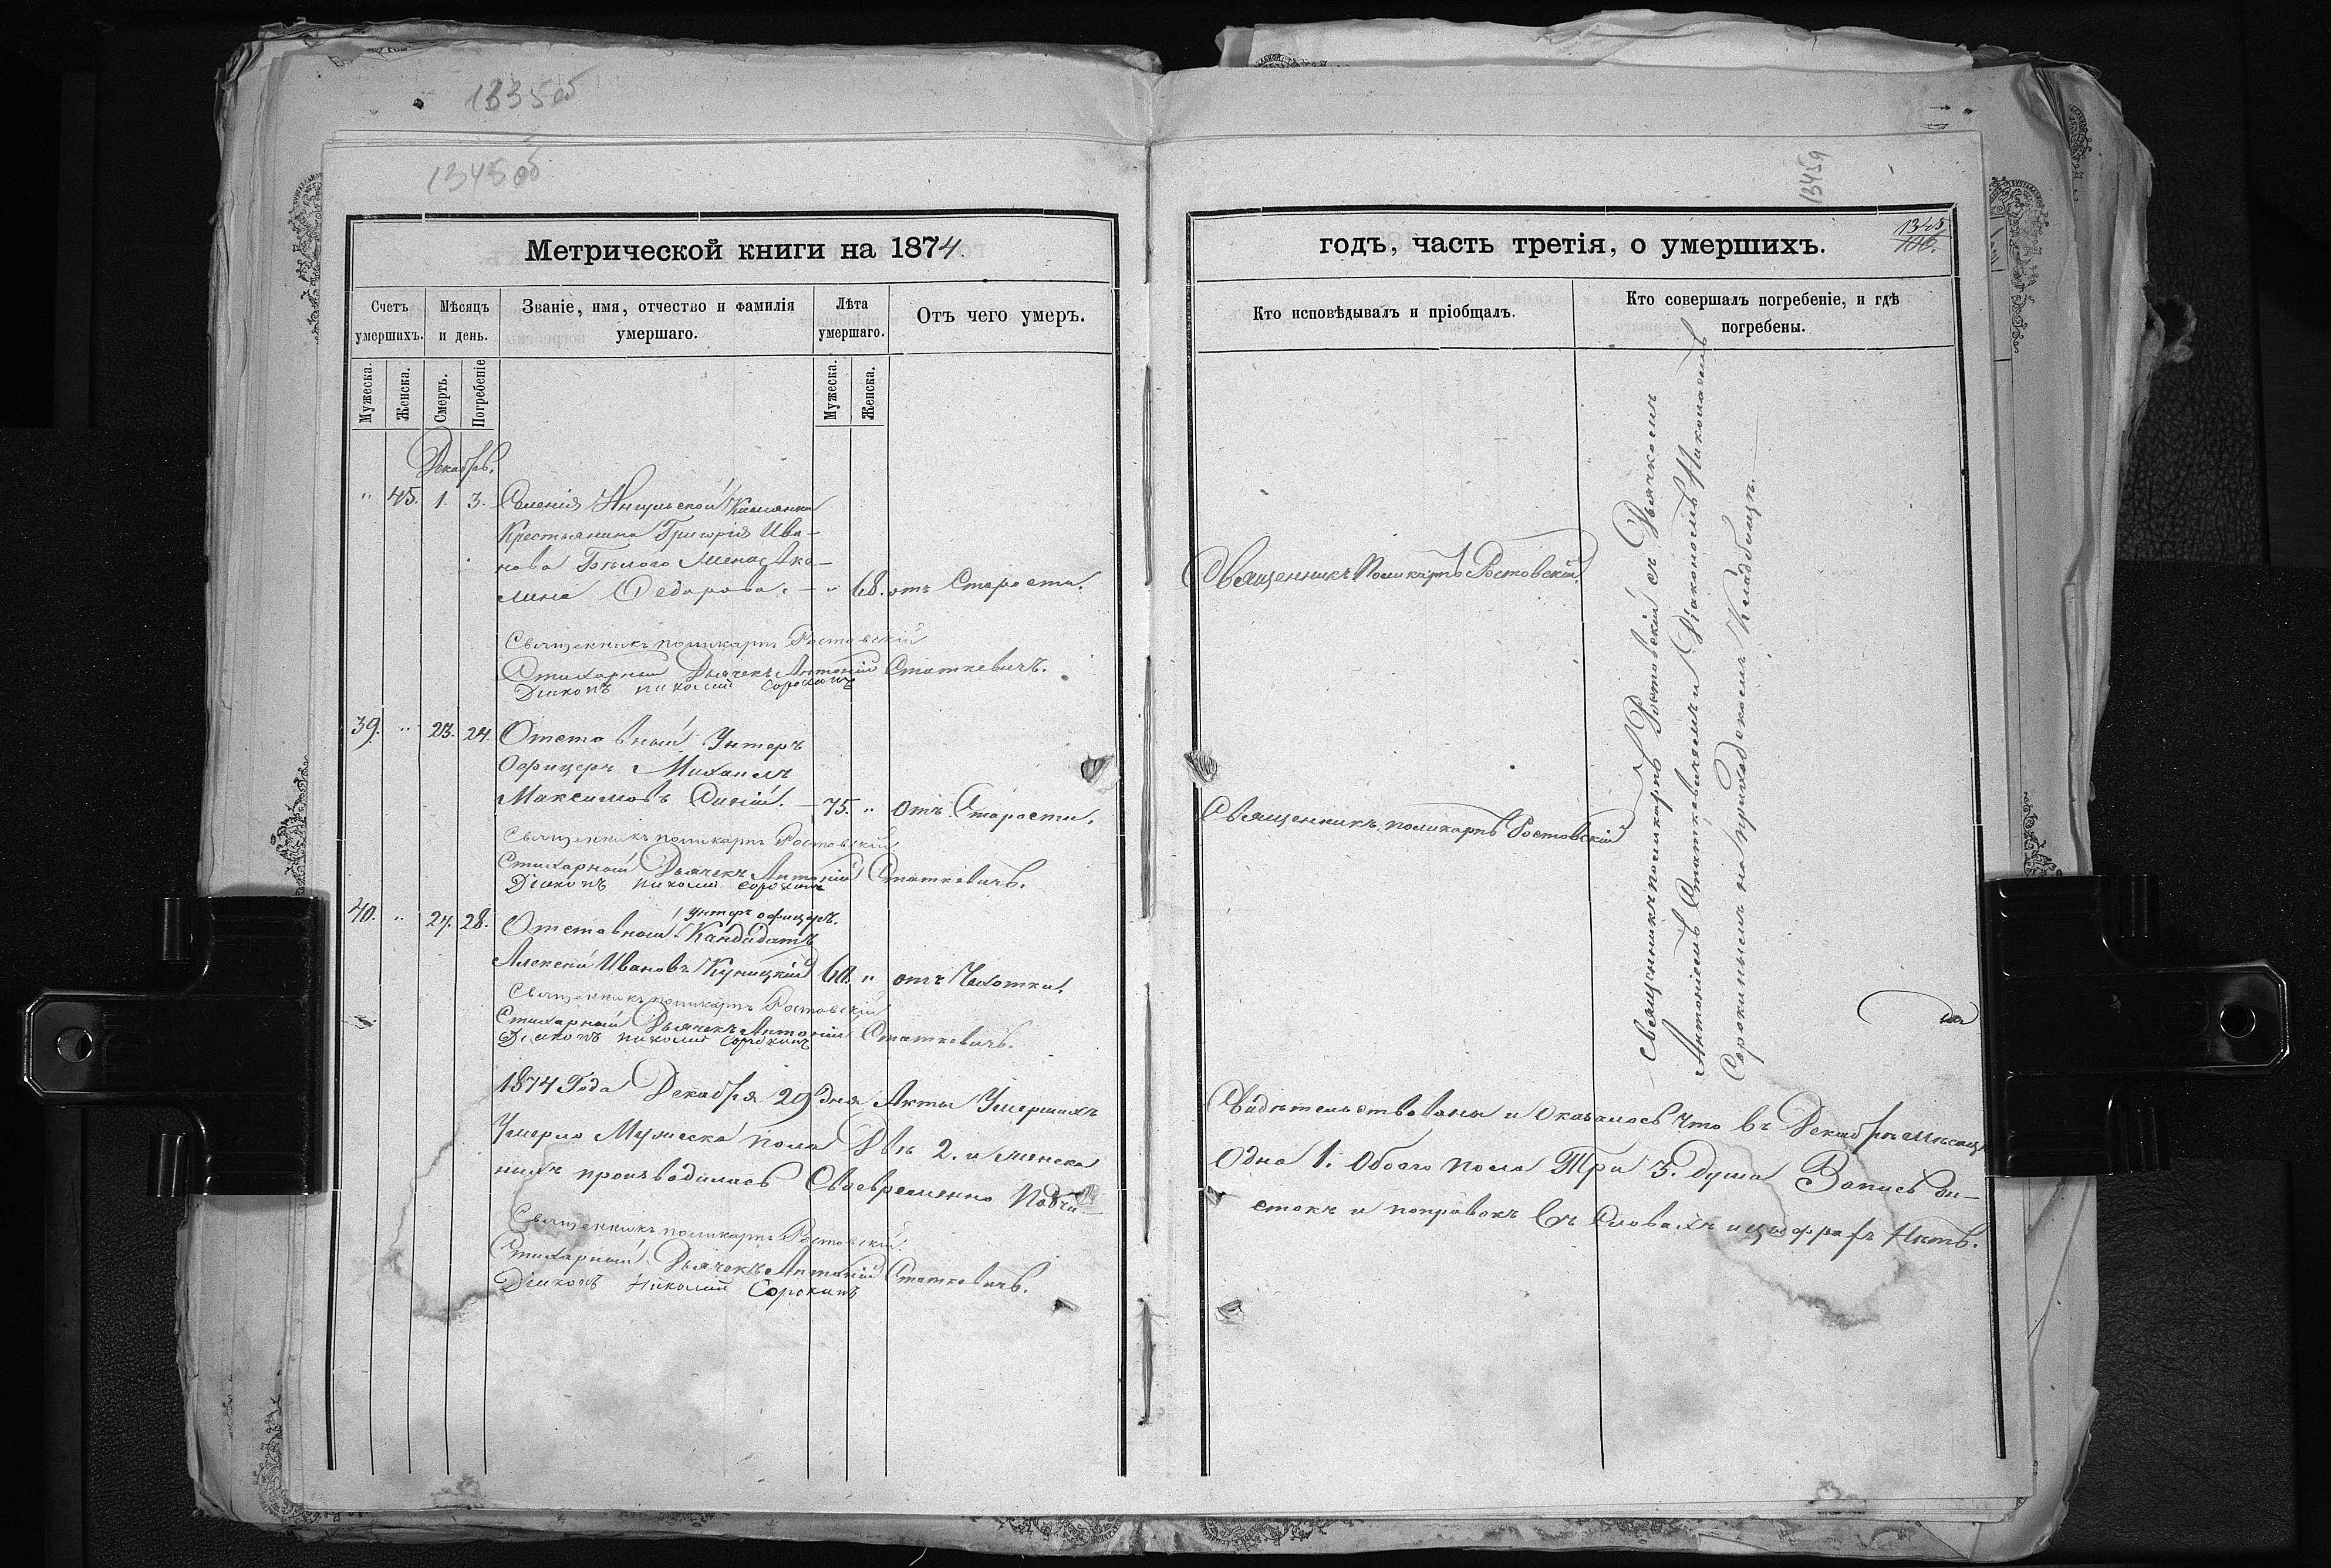 1335об
1345об
Метрической книги на 1874.
Счетъ умершихъ.
Мѣсяцъ и день.
Званіе, имя, отчество и фамилія умершаго.
Лѣта умершаго.
Отъ чего умеръ.
Мужеска.
Женска.
Смерть.
Погребеніе
Мужеска.
Женска.
Декабрь.
" 45. 1. 3. Селенія
Крестьянина Григорія Ива-
нова Бѣлого жена Аку-
лина Федорова. — " 68. отъ Старости.
Священникъ Поликарпъ Ростовскій
Стихарный Дьячекъ Антоній Статкевичъ.
Діаконъ Николай Сорокинъ
39. " 23. 24. Отставный Унтеръ
Офицеръ Михаилъ
Максимовъ — 75. " отъ Старости.
Священникъ Поликарпъ Ростовскій
Стихарный Дьячекъ Антоній Статкевичъ.
Діаконъ Николай Сорокинъ
унтеръ офицеръ.
40. " 27. 28. Отставный Кандидатъ
Алексей Ивановъ Куницкій 60. " отъ Чахотки.
Священникъ Поликарпъ Ростовскій
Стихарный Дьячекъ Антоній Статкевичъ.
Діаконъ Николай Сорокинъ
1874 Года Декабря 29 дня Акты Умершихъ
Умерло Мужеска пола Двѣ 2. и женска
ныхъ производилась Своевременно Подчи-
Священникъ Поликарпъ Ростовскій.
Стихарный Дьячекъ Антоній Статкевичъ.
Діаконъ Николай Сорокинъ
1345а
1345
106.
годъ, часть третія, о умершихъ.
Кто исповѣдывалъ и пріобщалъ.
Кто совершалъ погребеніе, и гдѣ погребены.
Священникъ Поликарпъ Ростовскій.
Священникъ Поликарпъ Ростовскій
Священникъ Поликарпъ Ростовскій съ Дьячкомъ
Антоніемъ Статкевичемъ и Діакономъ Николаемъ
Сорокинымъ на приходскомъ Кладбищѣ.
Свидѣтельствованы и Оказалось что въ Декабрѣ мѣсяцѣ
Одна 1. Обоего пола Три 3. душа Запись он-
стокъ и поправокъ въ Словахъ и цыфрахъ Нѣтъ.